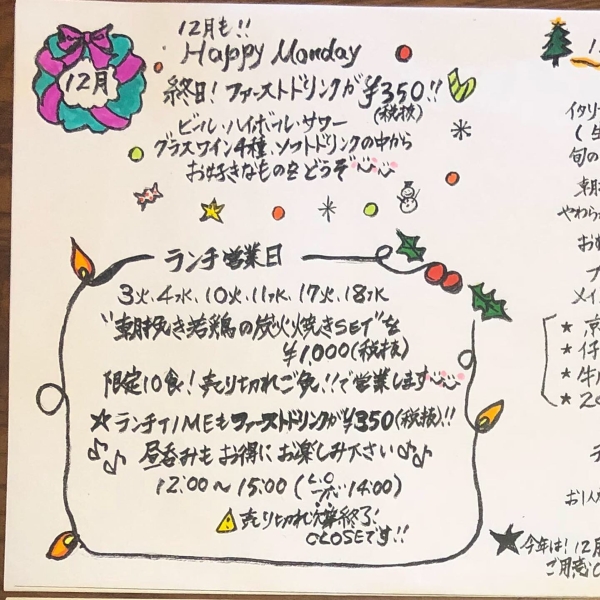 12月
12月も!!
Happy Monday
終日!ファーストドリンクが¥350!!
(税抜)
ビール・ハイボール・サワー
グラスワイン4種、ソフトドリンクの中から
お好きなものをどうぞ
ランチ営業日
3火、4水、10火、11水、17火、18水
"朝挽き若鶏の炭火焼きSET"を
¥1,000(税抜)
限定10食!売り切れご免!!で営業します
★ランチTIMEもファーストドリンクが¥350(税抜)!!
♪♪昼呑みもお得にお楽しみ下さい♪♪
12:00~15:00(L.O 14:00)
売り切れ次第終了!
CLOSEです!!
イタリ
(生
旬の
朝
やわら
お
メイ
★京
★仔
★牛
★20
お1人
★今年は!12月
ご用意